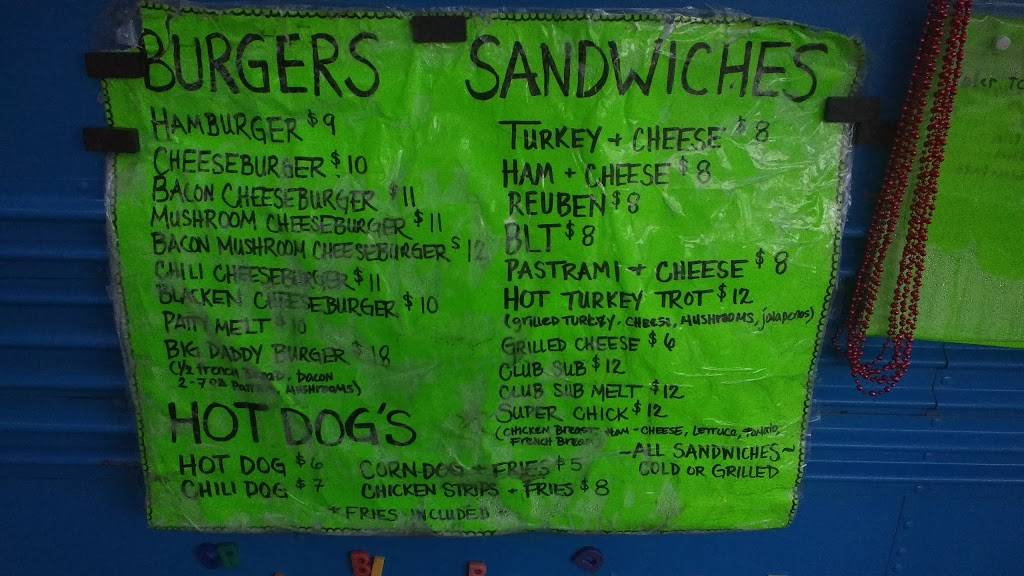 BURGERS
HAMBURGER $9
CHEESEBURGER $10
BACON CHEESEBURGER $11
MUSHROOM CHEESEBURGER $11
BACON MUSHROOM CHEESEBURGER $12
CHILI CHEESEBURGER $11
BLACKEN CHEESEBURGER $10
PATTY MELT $10
BIG DADDY BURGER $18
(1/2 FRENCH BREAD, bacon
2-7oz MUSHROOMS)
HOT DOG'S
HOT DOG $6
CHILI DOG $7
CORN-DOG + FRIES $5
CHICKEN STRIPS + FRIES $8
* FRIES INCLUDED *
SANDWICHES
TURKEY + CHEESE $8
HAM + CHEESE $8
REUBEN $8
BLT $8
PASTRAMI + CHEESE $8
HOT TURKEY TROT $12
(grilled TURKEY, CHEESE, MUSHROOMS, jalapenos)
GRILLED CHEESE $6
CLUB SUB $12
CLUB SUB MELT $12
SUPER CHICK $12
(CHICKEN BREAST, HAM - CHEESE, LETTUCE, TOMATO,
FRENCH BREAD)
~ALL SANDWICHES~
COLD OR GRILLED